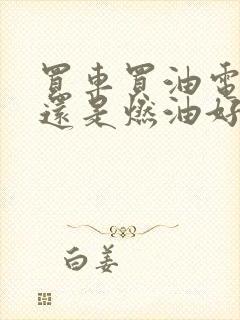 買車買油電
還是燃油好
白姜